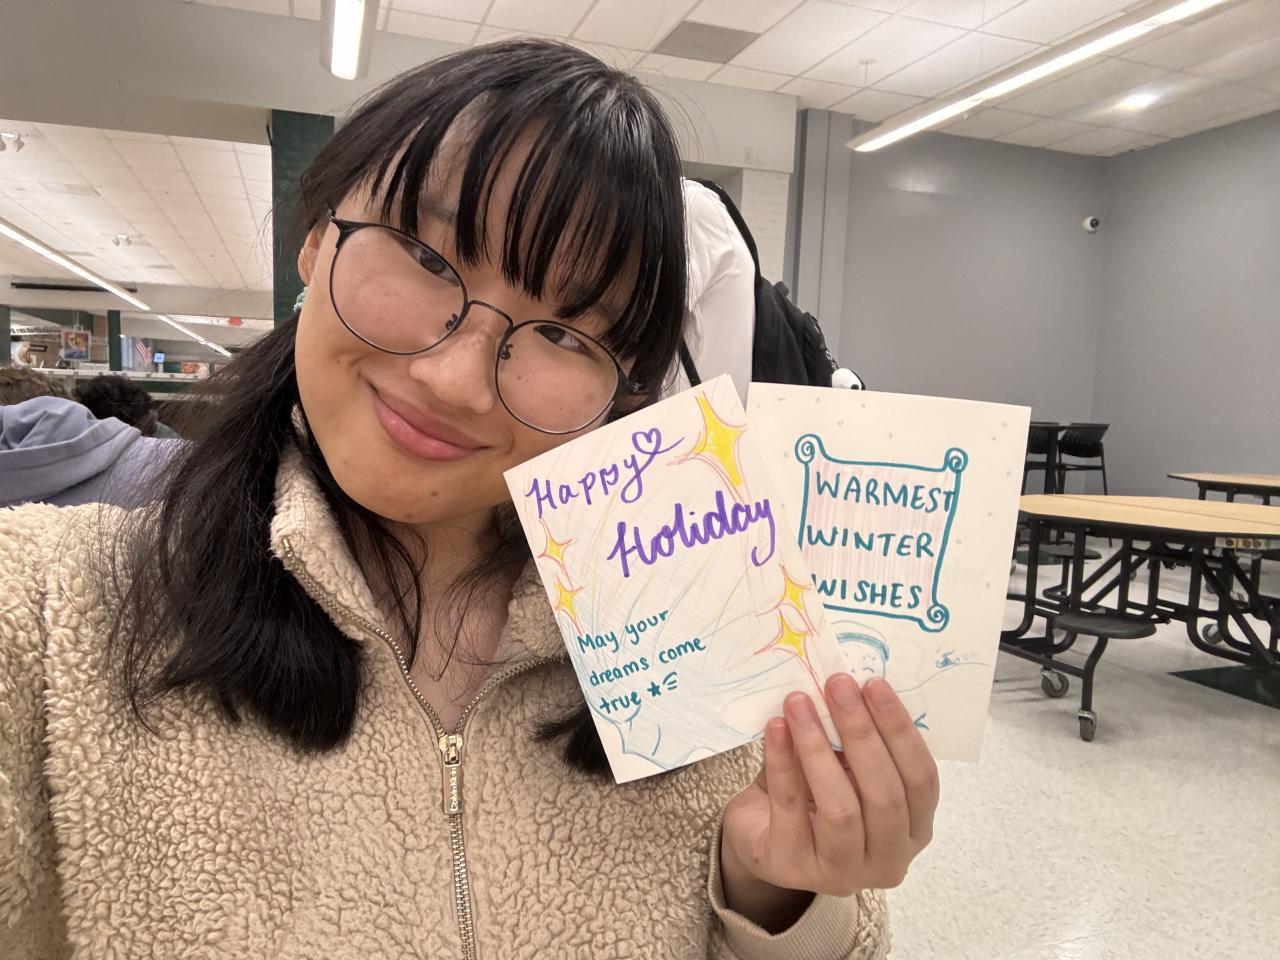 Happy
Holiday
May your
dreams come
true
WARMEST
WINTER
WISHES
Calvin Klein